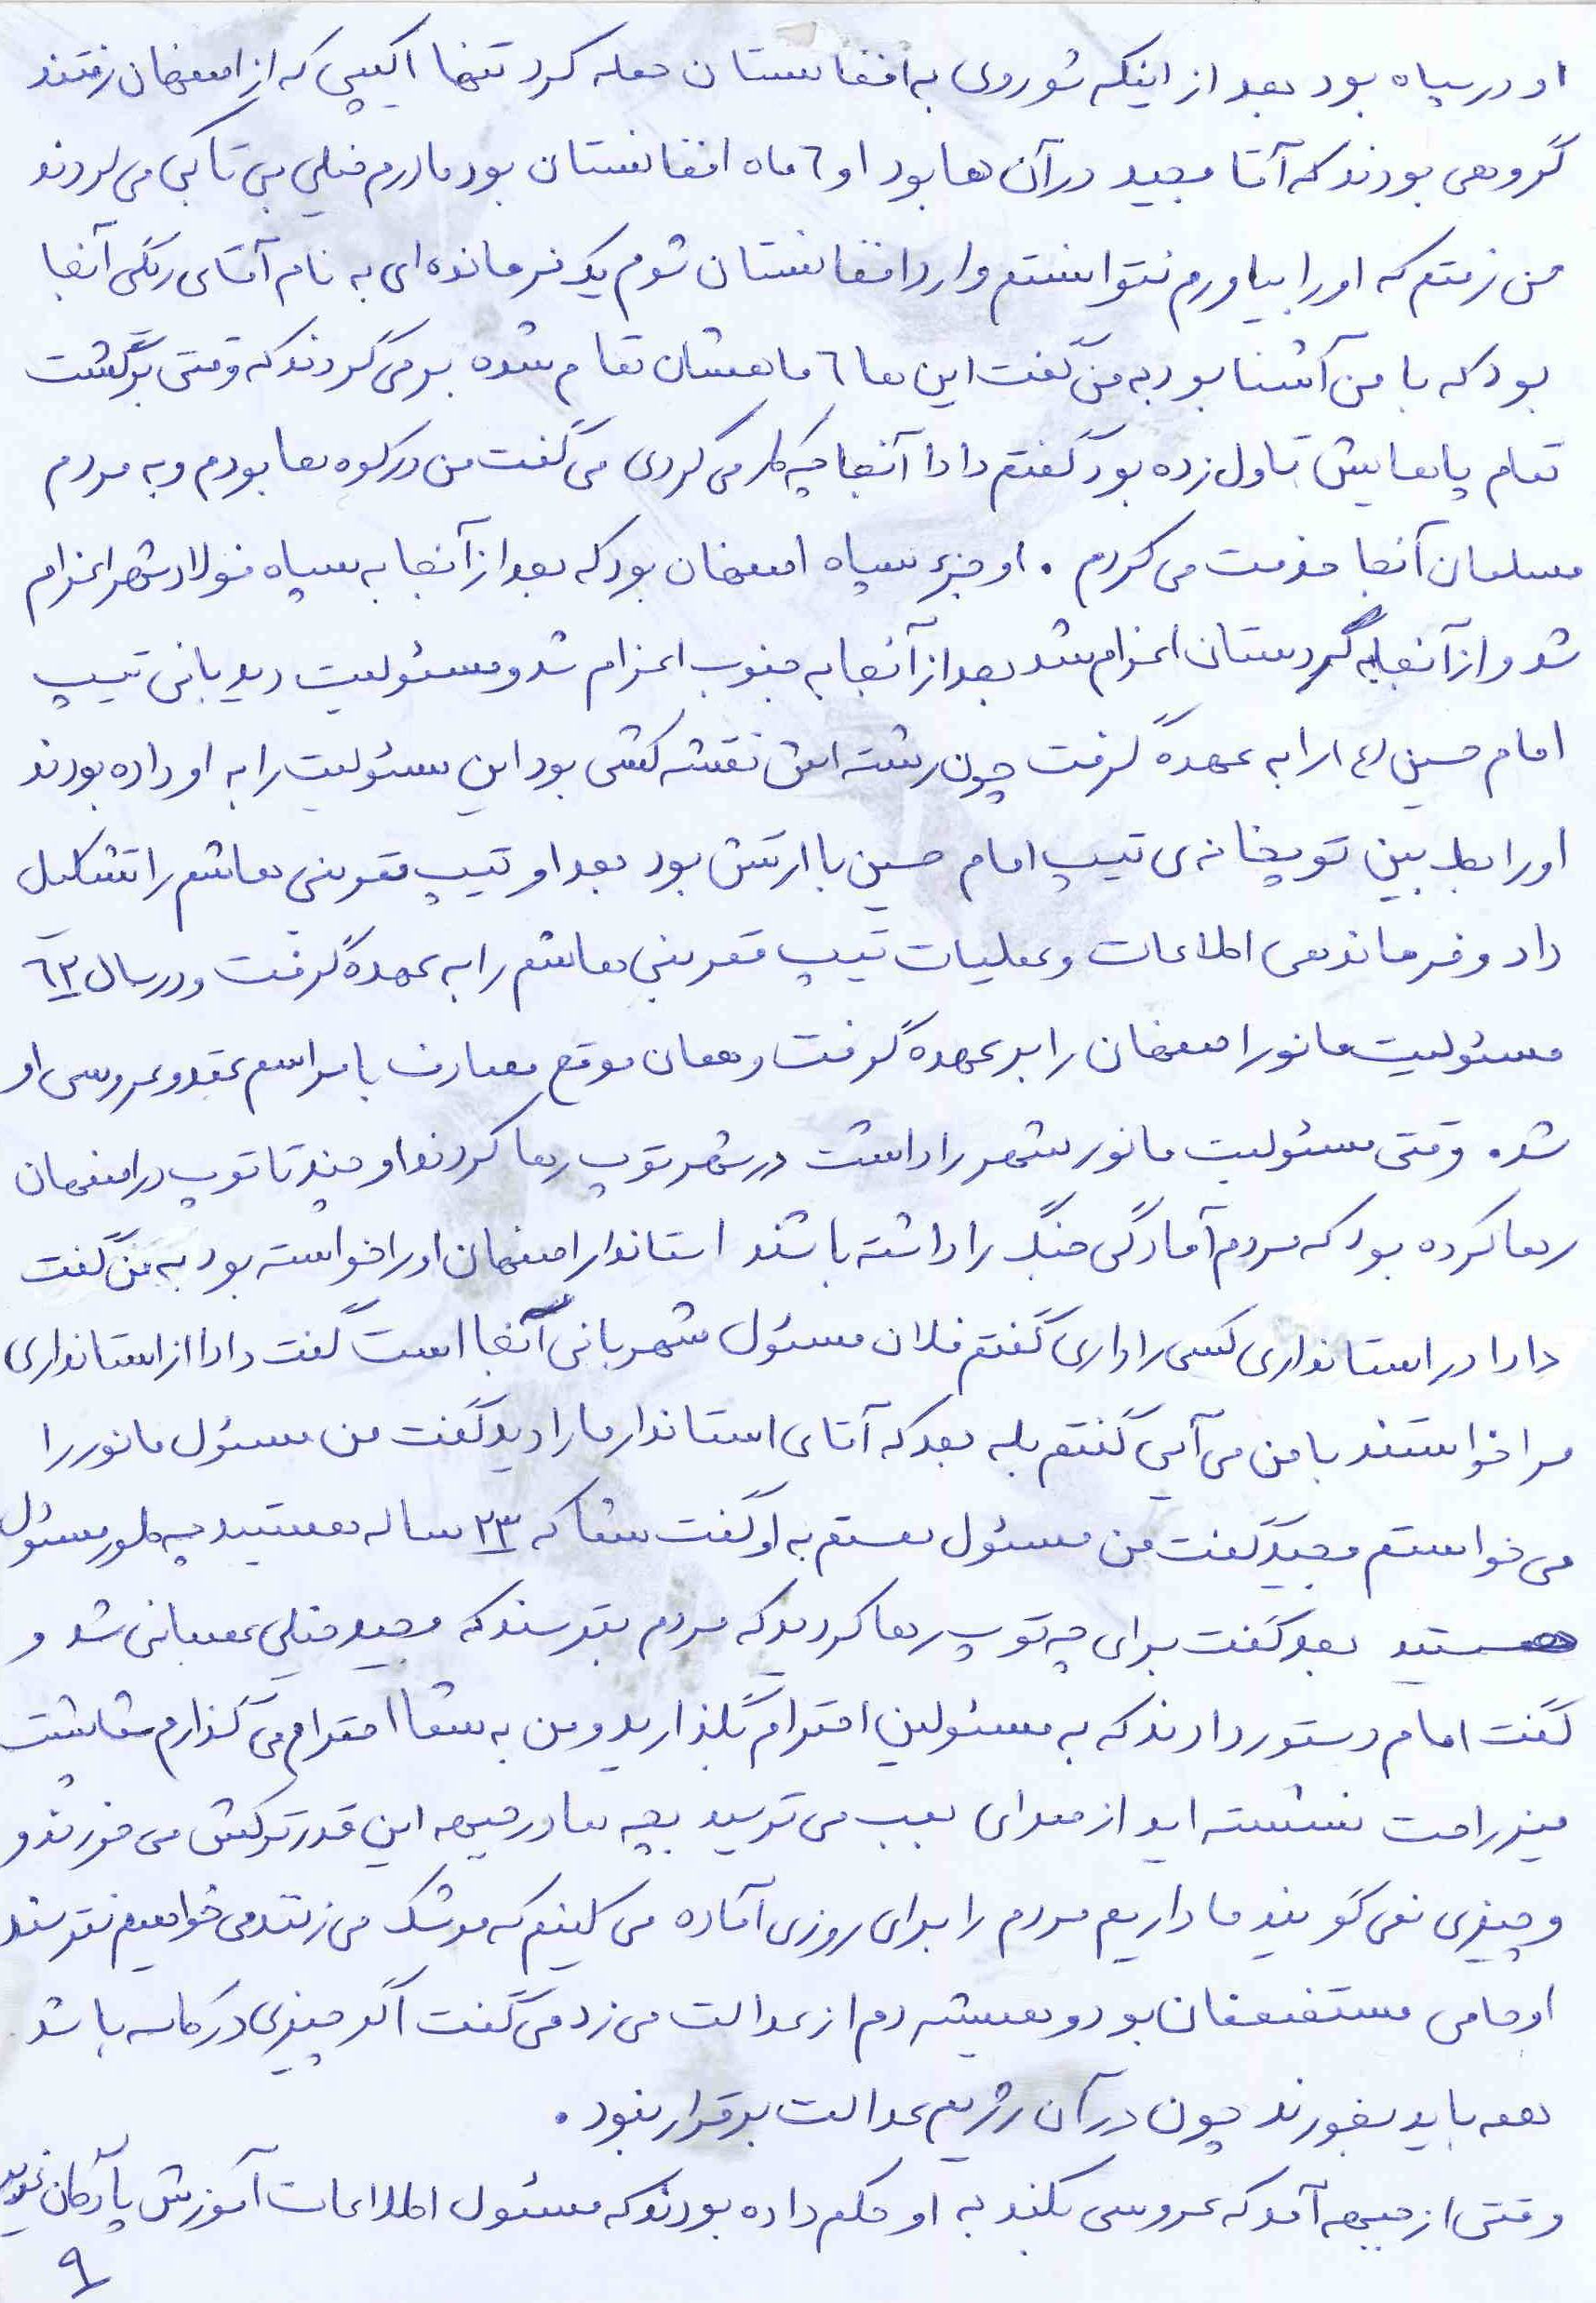 او در سپاه بود بعد از اینکه شوروی به افغانستان حمله کرد تنها اکیپی که از اصفهان رفتند
گروهی بودند که آقا مجید در آن ها بود او ٦ ماه افغانستان بود مادرم خیلی بی تابی می کردند
من رفتم که او را بیاورم نتوانستم وارد افغانستان شوم یک فرمانده ای به نام آقای رنگی آنجا
بود که با من آشنا بود به من گفت این ها ٦ ماهشان تمام شده برمی گردند که وقتی برگشت
تمام پاهایش تاول زده بود گفتم دادا آنجا چه کار می کردی می گفت من در کوه ها بودم و به مردم
مسلمان آنجا خدمت می کردم . او جزء سپاه اصفهان بود که بعد از آنجا به سپاه فولادشهر اعزام
شد و از آنجا به کردستان اعزام شد بعد از آنجا به جنوب اعزام شد و مسئولیت دیدبانی تیپ
امام حسین (ع) را به عهده گرفت چون رشته اش نقشه کشی بود این مسئولیت را به او داده بودند
او رابط بین توپخانه ی تیپ امام حسین با ارتش بود بعد او تیپ قمربنی هاشم را تشکیل
داد و فرماندهی اطلاعات و عملیات تیپ قمربنی هاشم را به عهده گرفت و در سال ٦٣
مسئولیت مانور اصفهان را بر عهده گرفت و همان موقع مصادف با مراسم عقد و عروسی او
شد. وقتی مسئولیت مانور شهر را داشت در شهر توپ رها کردند او چند تا توپ در اصفهان
رها کرده بود که مردم آمادگی جنگ را داشته باشند استاندار اصفهان او را خواسته بود به من گفت
دادا در استانداری کسی را داری گفتم فلان مسئول شهربانی آنجا است گفت دادا از استانداری
مرا خواستند با من می آیی گفتم بله بعد که آقای استاندار ما را دید گفت من مسئول مانور را
می خواستم مجید گفت من مسئول هستم به او گفت شما که ٢٣ ساله هستید چه طور مسئول
هستید بعد گفت برای چه توپ رها کردید که مردم بترسند که مجید خیلی عصبانی شد و
گفت امام دستور دادند که به مسئولین احترام بگذارید و من به شما احترام می گذارم شما پشت
میز راحت نشسته اید از صدای بمب می ترسید بچه ها در جبهه این قدر ترکش می خورند و
و چیزی نمی گویند ما داریم مردم را برای روزی آماده می کنیم که موشک می زنند می خواهیم نترسند
او حامی مستضعفان بود و همیشه دم از عدالت می زد می گفت اگر چیزی در کاسه باشد
همه باید بخورند چون در آن رژیم عدالت برقرار نبود .
وقتی از جبهه آمد که عروسی بکند به او حکم داده بودند که مسئول اطلاعات آموزش پادگان غدیر
٩